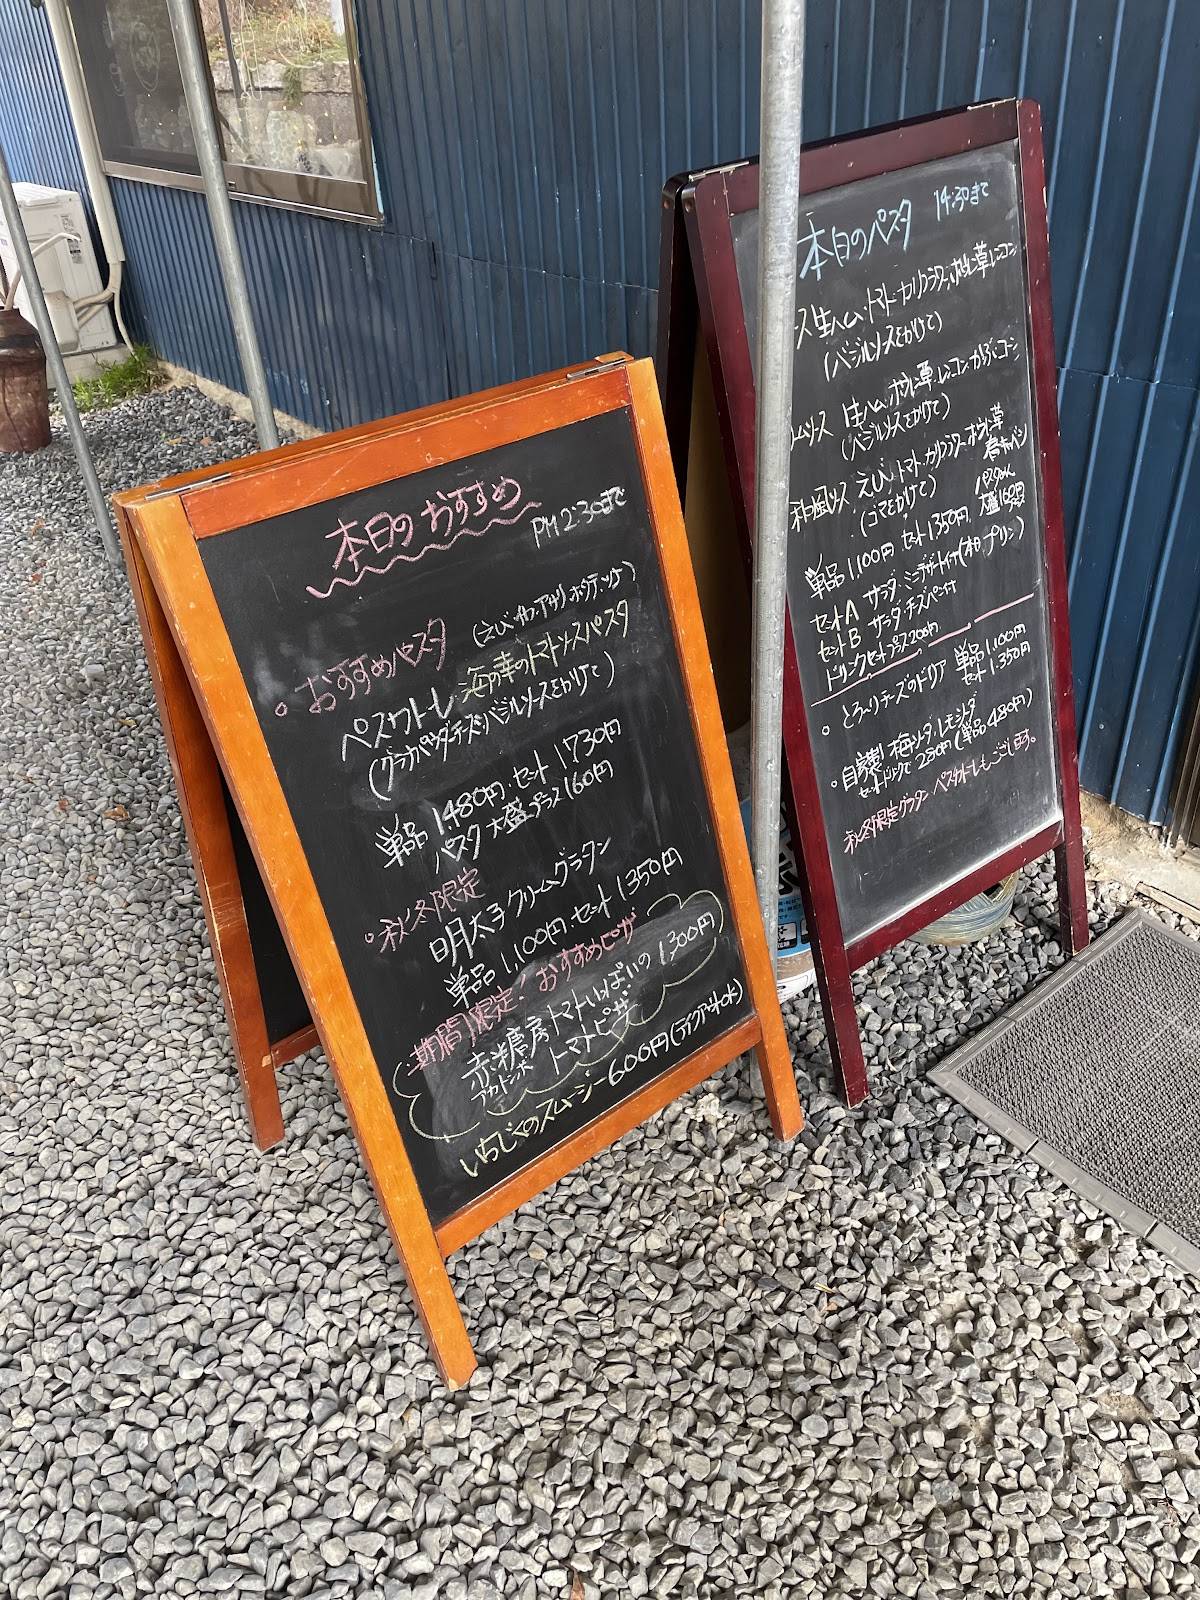 本日のおすすめ
PM 2:30まで
。おすすめパスタ (えび.イカ.アサリ.ホタテ.ツナ)
ペスカトーレ 海の幸のトマトソースパスタ
(グラナパウダーチーズ・バジルソースをかけて)
単品 1,480円.セット 1,730円
パスタ 大盛プラス160円
。秋冬限定
明太子クリームグラタン
単品 1,100円.セット 1,350円
期間限定!おすすめピザ
赤糖房トマトいっぱいの 1,300円
アカトンボ トマトピザ
いちじくのスムージー600円(テイクアウトOK)
本日のパスタ 14:30まで
ース 生ハム・トマト・カリフラワー.ほうれん草.レンコン
(バジルソースをかけて)
ームソース 生ハム・ほうれん草.レンコン
(バジルソースをかけて)
和風ソース えび・トマト・カリフラワー・ほうれん草
(ゴマをかけて) 春キャベツ
単品1,100円 セット1,350円. 大盛160円
セットA サラダ・ミニデザート付(プリン)
セットB サラダ・チーズパン付
ドリンクセットプラス200円
。とろ〜りチーズのドリア 単品 1,100円
セット 1,350円
。自家製 梅ソーダ・レモンソーダ
セットドリンクで 250円(単品480円)
秋冬限定グラタン ペスカトーレもございます。